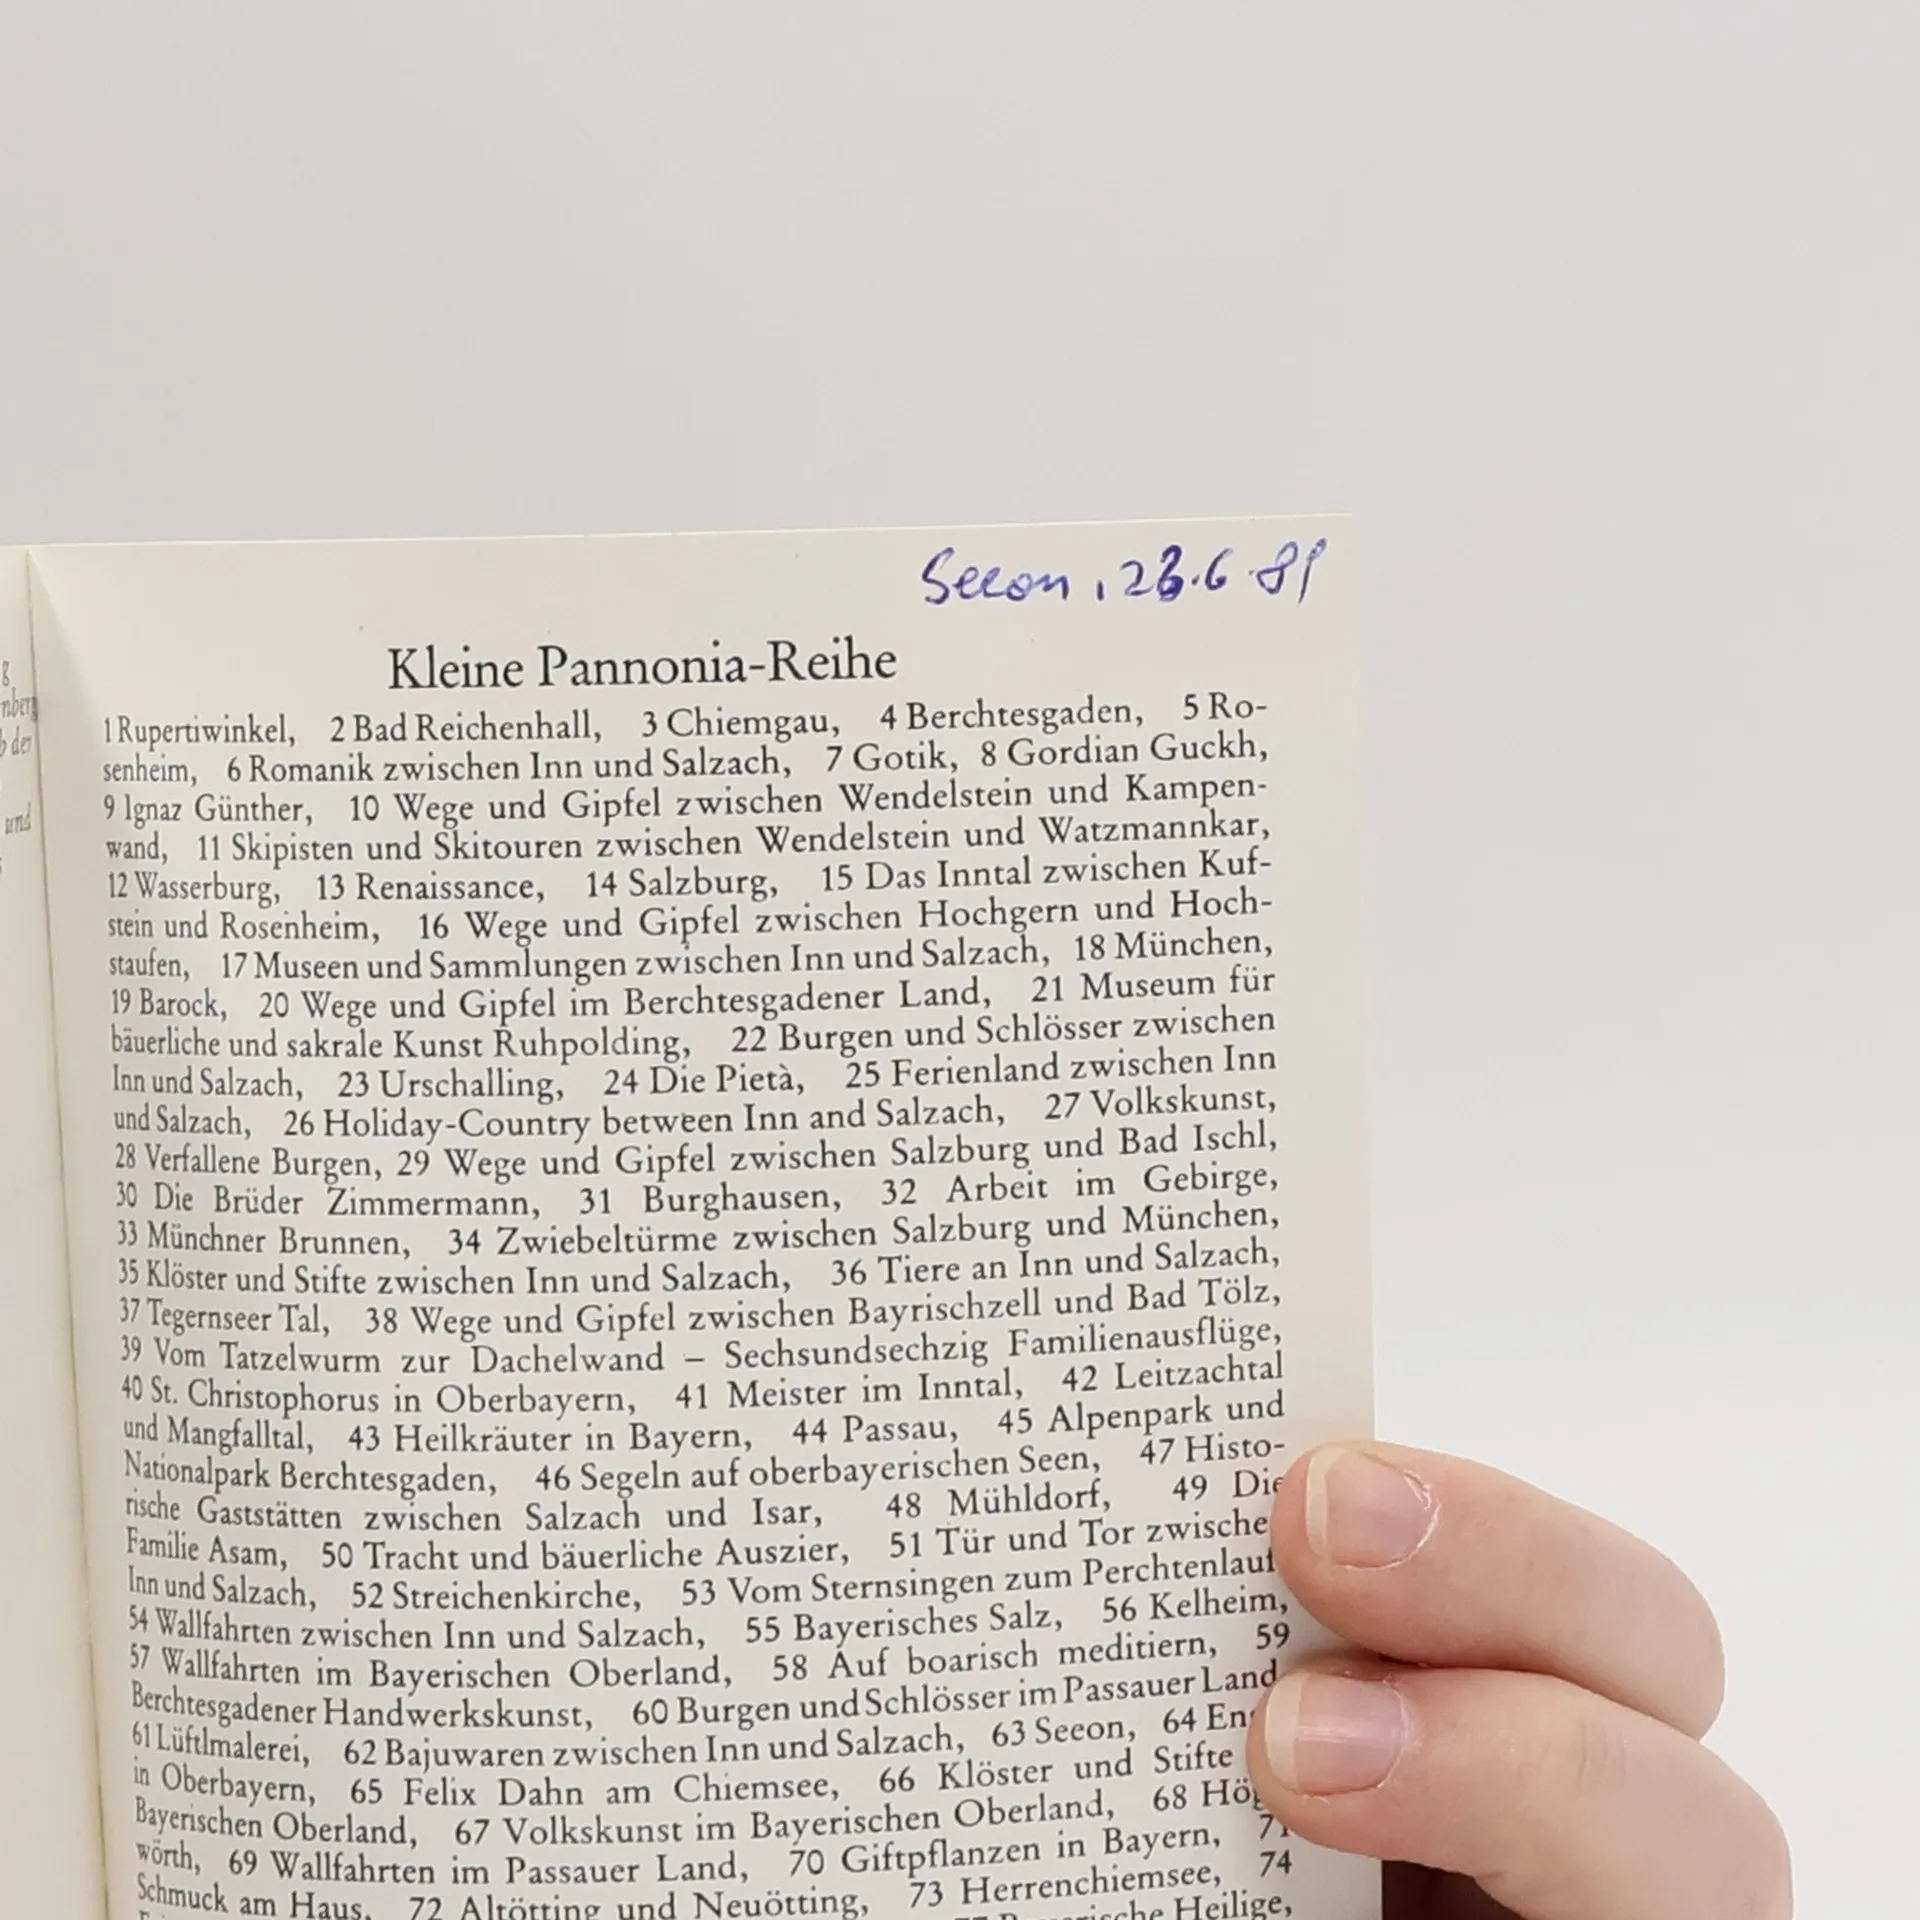 Seeon, 23.6.89
Kleine Pannonia-Reihe
1 Rupertiwinkel, 2 Bad Reichenhall, 3 Chiemgau, 4 Berchtesgaden, 5 Ro-
senheim, 6 Romanik zwischen Inn und Salzach, 7 Gotik, 8 Gordian Guckh,
9 Ignaz Günther, 10 Wege und Gipfel zwischen Wendelstein und Kampen-
wand, 11 Skipisten und Skitouren zwischen Wendelstein und Watzmannkar,
12 Wasserburg, 13 Renaissance, 14 Salzburg, 15 Das Inntal zwischen Kuf-
stein und Rosenheim, 16 Wege und Gipfel zwischen Hochgern und Hoch-
staufen, 17 Museen und Sammlungen zwischen Inn und Salzach, 18 München,
19 Barock, 20 Wege und Gipfel im Berchtesgadener Land, 21 Museum für
bäuerliche und sakrale Kunst Ruhpolding, 22 Burgen und Schlösser zwischen
Inn und Salzach, 23 Urschalling, 24 Die Pietà, 25 Ferienland zwischen Inn
und Salzach, 26 Holiday-Country between Inn and Salzach, 27 Volkskunst,
28 Verfallene Burgen, 29 Wege und Gipfel zwischen Salzburg und Bad Ischl,
30 Die Brüder Zimmermann, 31 Burghausen, 32 Arbeit im Gebirge,
33 Münchner Brunnen, 34 Zwiebeltürme zwischen Salzburg und München,
35 Klöster und Stifte zwischen Inn und Salzach, 36 Tiere an Inn und Salzach,
37 Tegernseer Tal, 38 Wege und Gipfel zwischen Bayrischzell und Bad Tölz,
39 Vom Tatzelwurm zur Dachelwand – Sechsundsechzig Familienausflüge,
40 St. Christophorus in Oberbayern, 41 Meister im Inntal, 42 Leitzachtal
und Mangfalltal, 43 Heilkräuter in Bayern, 44 Passau, 45 Alpenpark und
Nationalpark Berchtesgaden, 46 Segeln auf oberbayerischen Seen, 47 Histo-
rische Gaststätten zwischen Salzach und Isar, 48 Mühldorf, 49 Die
Familie Asam, 50 Tracht und bäuerliche Auszier, 51 Tür und Tor zwische
Inn und Salzach, 52 Streichenkirche, 53 Vom Sternsingen zum Perchtenlauf
54 Wallfahrten zwischen Inn und Salzach, 55 Bayerisches Salz, 56 Kelheim,
57 Wallfahrten im Bayerischen Oberland, 58 Auf boarisch meditiern, 59
Berchtesgadener Handwerkskunst, 60 Burgen und Schlösser im Passauer Land
61 Lüftlmalerei, 62 Bajuwaren zwischen Inn und Salzach, 63 Seeon, 64
in Oberbayern, 65 Felix Dahn am Chiemsee, 66 Klöster und Stifte
Bayerischen Oberland, 67 Volkskunst im Bayerischen Oberland, 68 Hög
wörth, 69 Wallfahrten im Passauer Land, 70 Giftpflanzen in Bayern, 71
Schmuck am Haus, 72 Altötting und Neuötting, 73 Herrenchiemsee, 74
Heilige,